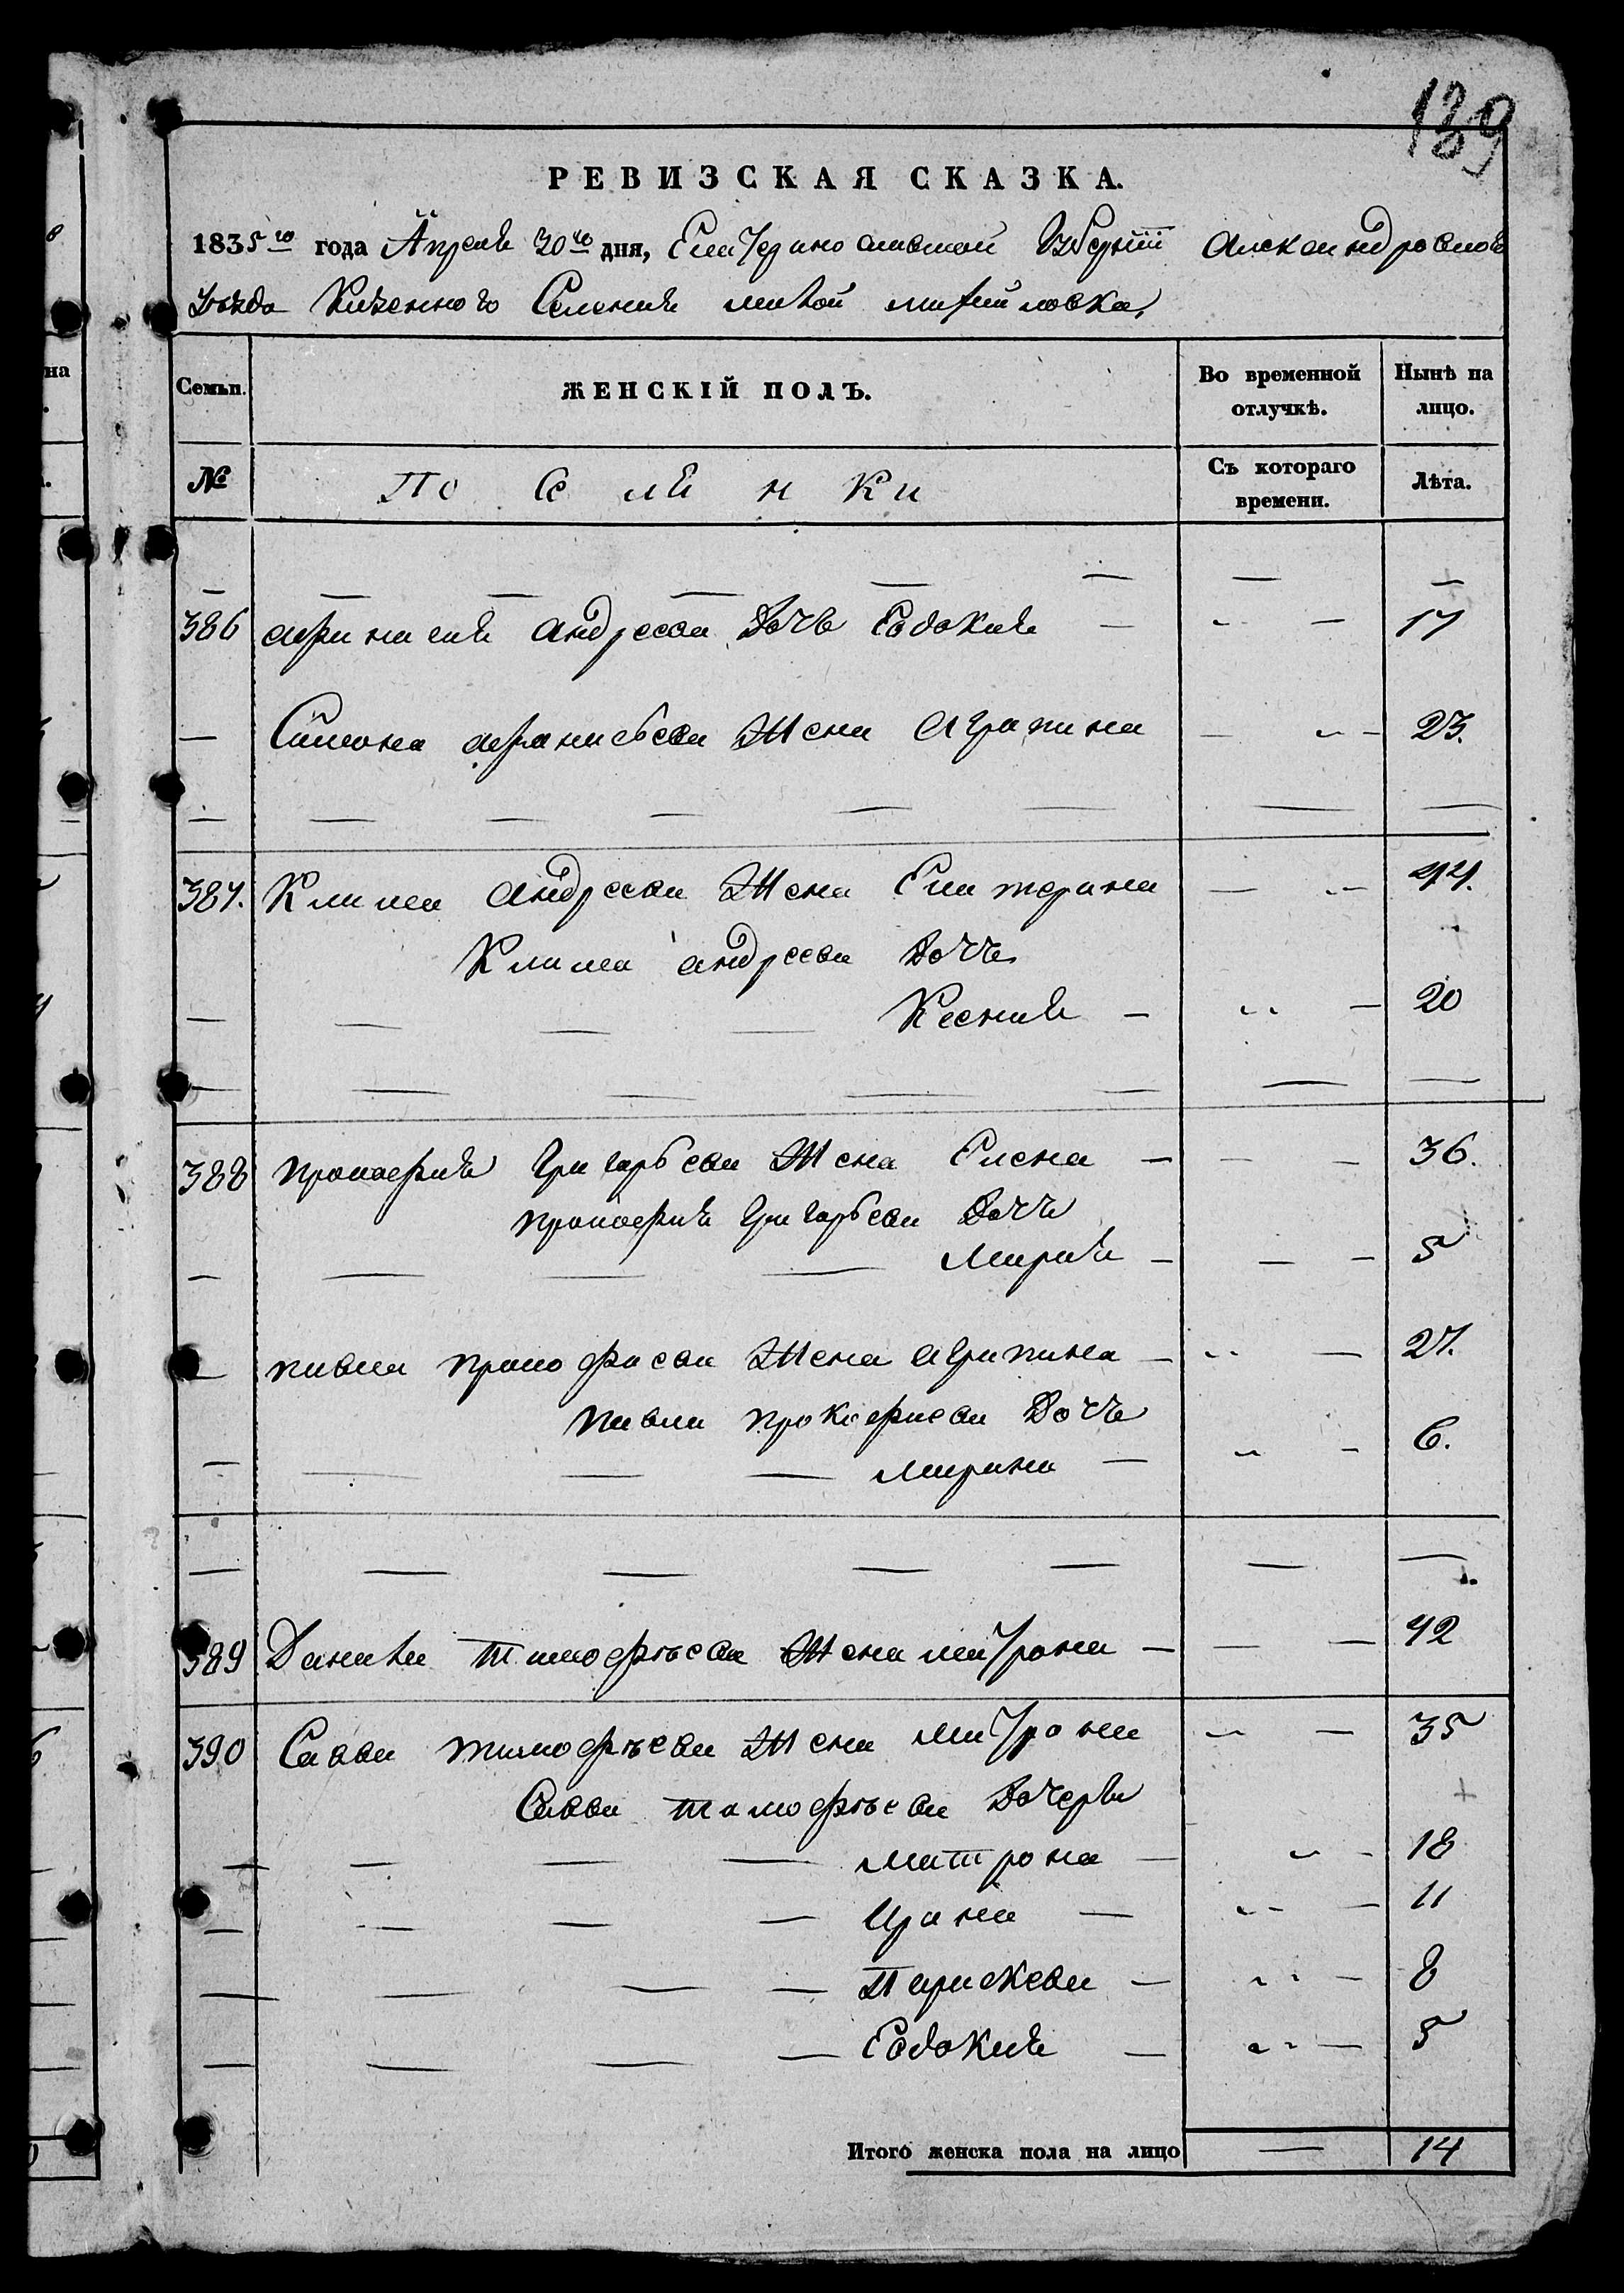 139
РЕВИЗСКАЯ СКАЗКА.
1835го года Апреля 30го дня, Екатеринославской Губернии Александровского
Уезда Казенного Селения малой михайловка
Семьи. ЖЕНСКІЙ ПОЛЪ. Во временной отлучкѣ. Нынѣ на лицо.
№ Поселянки Съ котораго времени. Лѣта.
386 афанасия андреева Дочь Евдокия — 17
— Симона афанасьева Жена Агрипина — 23.
387. Клима андреева Жена Екатерина — 44.
Клима андреева Дочь
— Ксения — 20
388 прокофия григорьева Жена Елена — 36.
прокофия григорьева Дочь
— Мария — 5
— павла прокофиева Жена агрипина — 27.
павла прокофиева Дочь
— марина — 6.
389 Данила Тимофѣева Жена матрона — 42
390 Савы тимофѣева Жена матрона — 35
Савы тимофѣева Дочери
— матрона — 18
— Ирина — 11
— Параскева — 8
— Евдокия — 5
Итого женска пола на лицо — 14